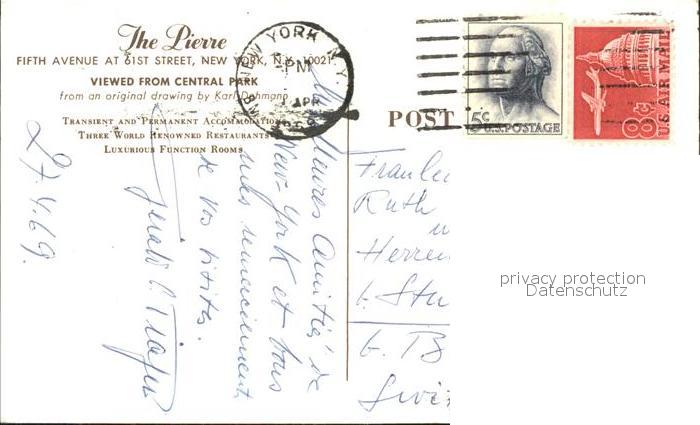 The Pierre
FIFTH AVENUE AT 61ST STREET, NEW YORK, N.Y. 10021
VIEWED FROM CENTRAL PARK
from an original drawing by Karl Dehmann
TRANSIENT AND PERMANENT ACCOMMODATIONS
THREE WORLD RENOWNED RESTAURANTS
LUXURIOUS FUNCTION ROOMS
NEW YORK, N.Y.
PM
APR
POST
5c
U.S. POSTAGE
8c
U.S. AIR MAIL
27.4.69.
Meilleures Amitiés de
New-York et tous
mes remerciements
de vos
Fraulei
Ruth
Herren
Stu
privacy protection
Datenschutz